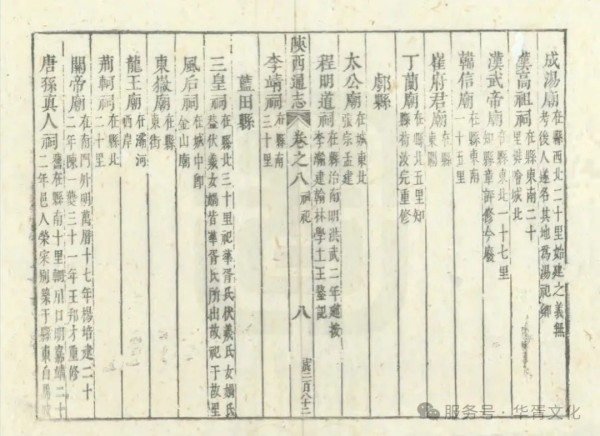 成湯廟在縣西北二十里始建之義無
考後人遂名其地為湯祀鄉
漢高祖祠在縣東南二十
里櫟陽城北
漢武帝廟在縣東北一十七里
知縣車評修今廢
韓信廟在縣東
一十五里
崔府君廟在縣
東關
丁蘭廟在縣北五里知
縣荀汝安重修
鄠縣
太公廟在城東北
張宗孟建
程明道祠在縣治南明洪武二年建後
李瀛建翰林學士王鏊記
陝西通志 卷之八 祠祀 八
李靖祠在縣南
三十里
藍田縣
三皇祠在縣北三十里祀華胥氏伏羲氏女媧氏
蓋伏羲女媧皆華胥氏所出故祀于故里
風后祠在城中即
金山廟
東嶽廟在縣
東街
龍王廟在灞河
西岸
荊軻祠在縣北
二十里
關帝廟在南門外明萬曆十七年楊培建二十
二年陳一葵三十一年王邦才重修
唐孫真人祠在縣南十里輞川口明嘉靖二十
二年邑人榮察別築于縣東白馬坡
服务号·华胥文化